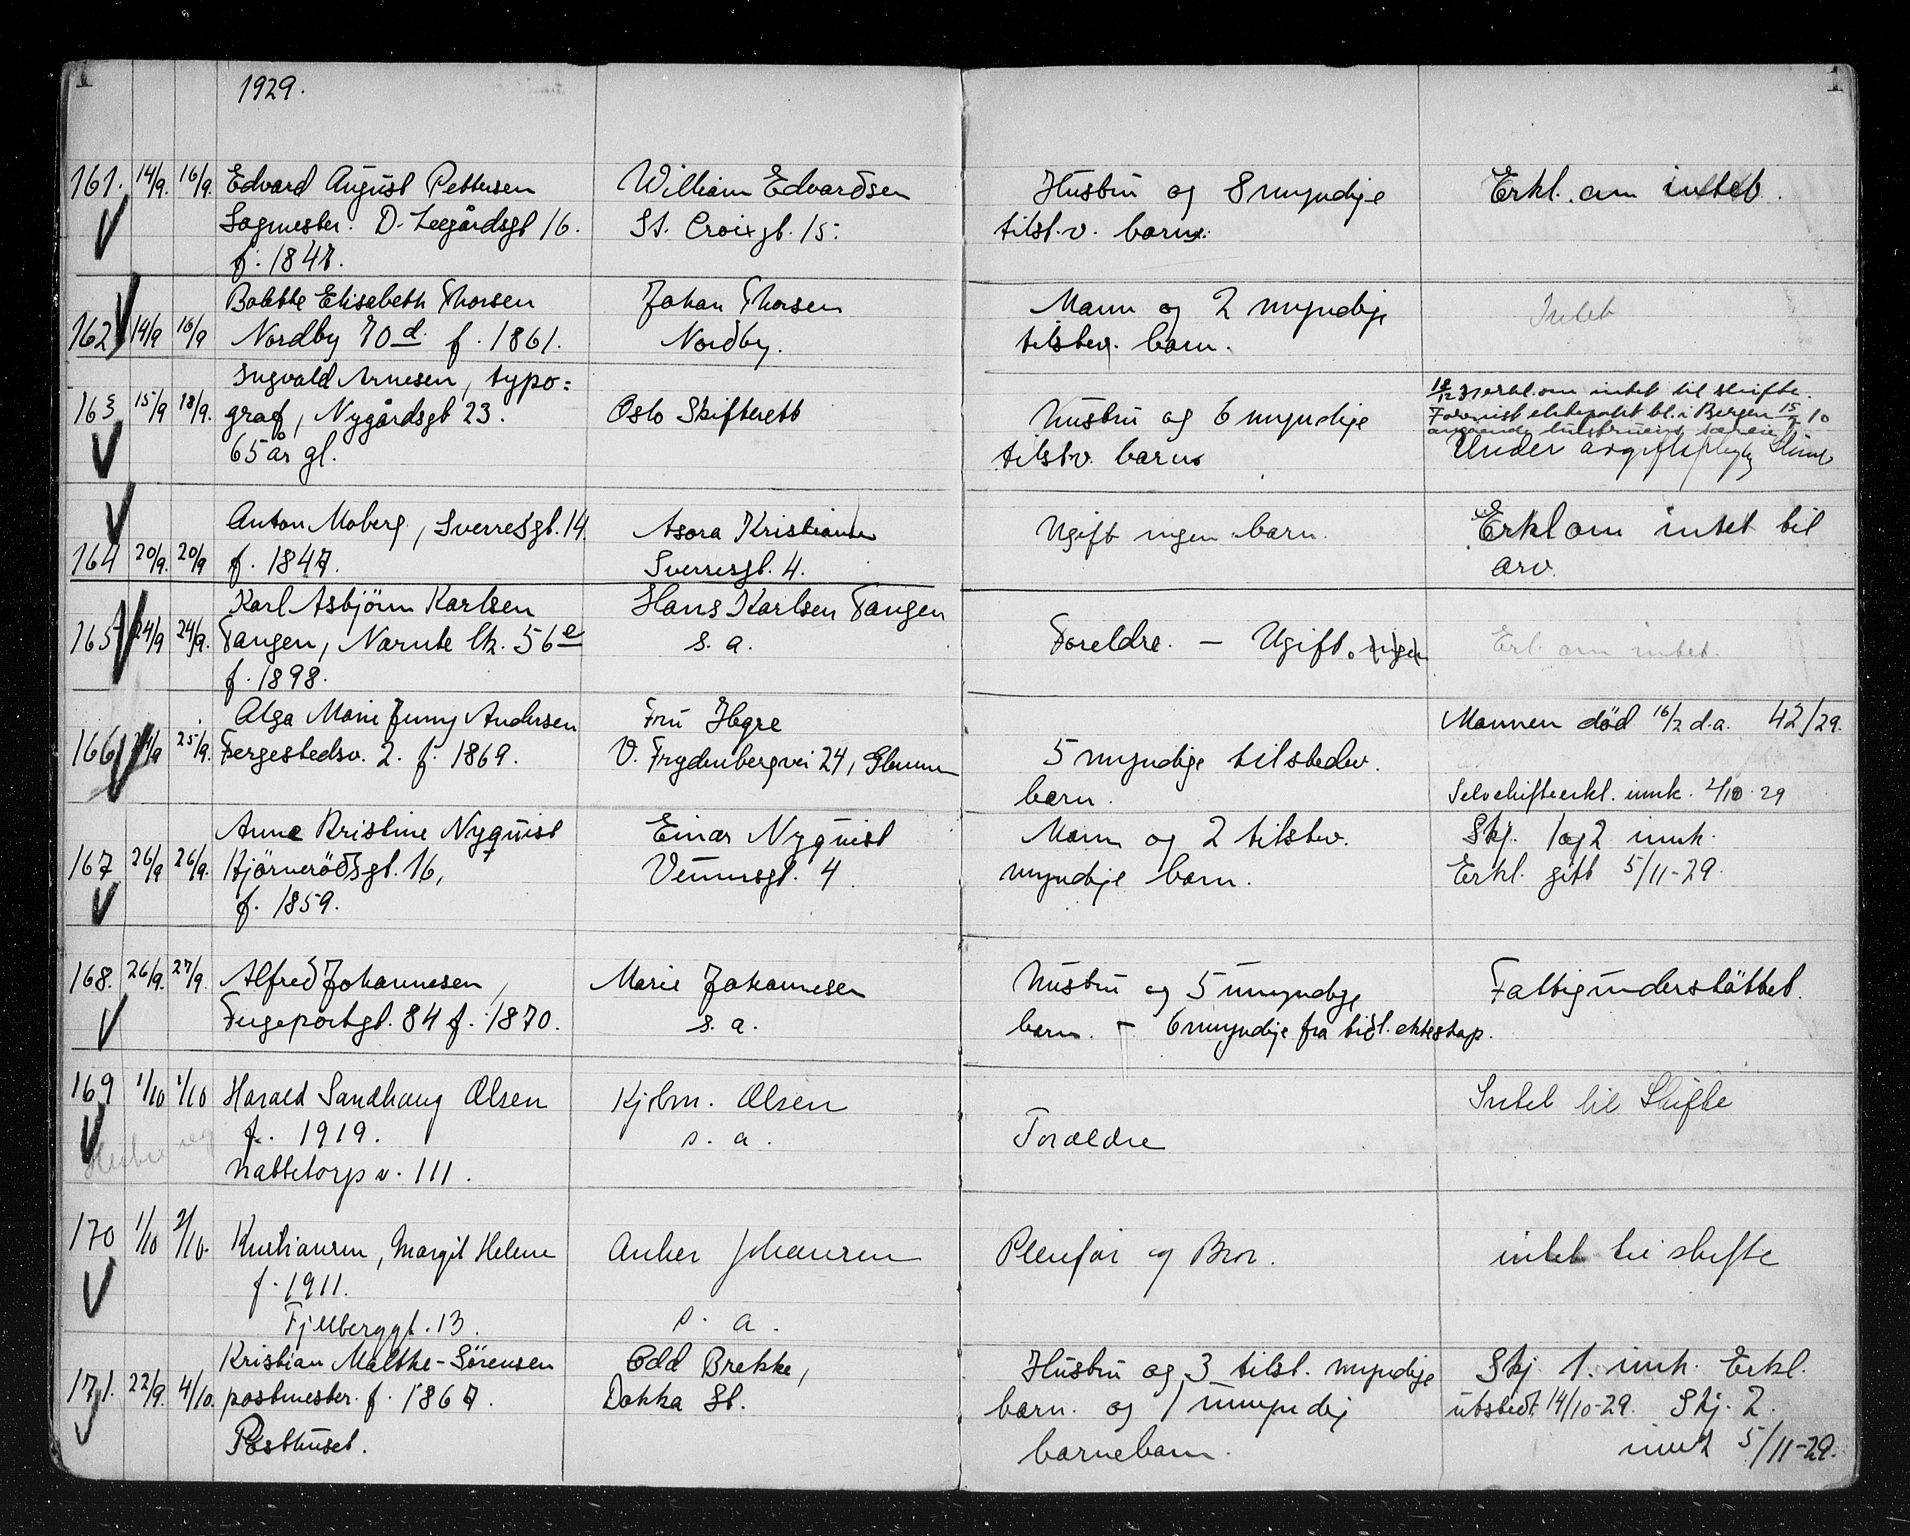 1929.
161. 14/9. 16/9. Edvard August Pettersen William Edvardsen Hustru og 8 myndige Erkl. om intet.
Sagmester. D. Leegårdsgt 16. St. Croixgt. 15. tilst.v. barn.
f. 1847.
Bolette Elisabeth Thorsen Johan Thorsen Mann og 2 myndige Intet
162 14/9 16/9 Nordby 70 d. f. 1861. Nordby. tilstev. barn.
Ingvald Arnesen, typo=
163 15/9 18/9. graf, Nygårdsgt 23. Oslo Skifterett Hustru og 6 myndige erkl. om intet til skifte.
bl. i Bergen 15/7 10
65 år gl. tilstv. barn Under avgiftspligtig
Anton Moberg, Sverresgt. 14. Asora Kristiansen Ugift ingen barn. Erkl om intet til
164 20/9. 20/9 f. 1847. Sverresgt. 4. arv.
Karl Asbjörn Karlsen Hans Karlsen Tangen
165 24/9 24/9. Tangen, Narnte lk. 56 e s. a. Foreldre. – Ugift. ingen Erl. om intet.
f. 1898.
Alga Marie Jenny Andersen Fru Hegre Mannen död 16/2 d.a. 42/29.
166 24/9 25/9. Fergestedsv. 2. f. 1869. V. Frydenbergvei 24, Glemmen 5 myndige tilstedev.
barn. Selvskifteerkl. innk. 2/10 29
Anne Kristine Nyquist Einar Nyquist Mann og 2 tilstev. Skj. 1 og 2 innk.
167 26/9 26/9. Hjörneröðsgt. 16, Venusgt. 4 myndige barn. Erkl. gitt 5/11-29.
f. 1859.
168. 26/9. 27/9. Alfred Johannesen, Marie Johannesen Hustru og 5 umyndige Fattigunderstöttet.
Fergeportgt. 84 f. 1870. s. a. barn. – 6 myndige fra tidl. ekteskap.
169 1/10 1/10 Harald Sandhaug Olsen Hjelm. Olsen Intet til Skifte
f. 1919. s. a. Forældre
Nabbetorp v. 111.
170 1/10 2/10. Kristiansen, Margit Helene Anker Johansen Pleiefar og Bror. intet til skifte
f. 1911.
Fjellberggt. 13. s. a.
Kristian Malthe-Sörensen Odd Brekke, Hustru og 3 tilst. myndige Skj 1. innk. Erkl.
171. 22/9. 4/10. postmester. f. 1867. Dokka St. barn. og 1 umyndig utstedt 14/10-29. Skj. 2.
Posthuset. barnebarn. innk 5/11-29.